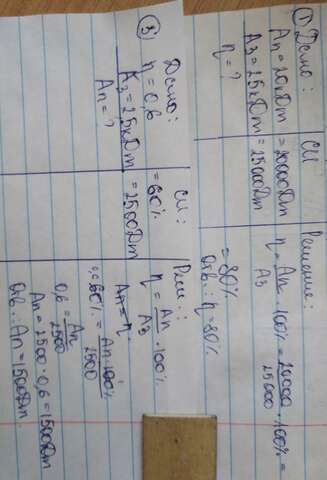 ① Дано:
Ап = 20кДж
Аз = 25кДж
η = ?
СИ:
= 20000Дж
= 25000Дж
Решение:
η = Ап/Аз · 100% = 20000/25000 · 100% =
= 80%
Отв.: η = 80%
③ Дано:
η = 0,6
Аз = 2,5кДж
Ап = ?
СИ:
= 60%
= 2500Дж
Реш.:
η = Ап/Аз · 100%
Ап = η
60% = Ап · 100%/2500
0,6 = Ап/2500
Ап = 2500 · 0,6 = 1500Дж
Отв.: Ап = 1500Дж